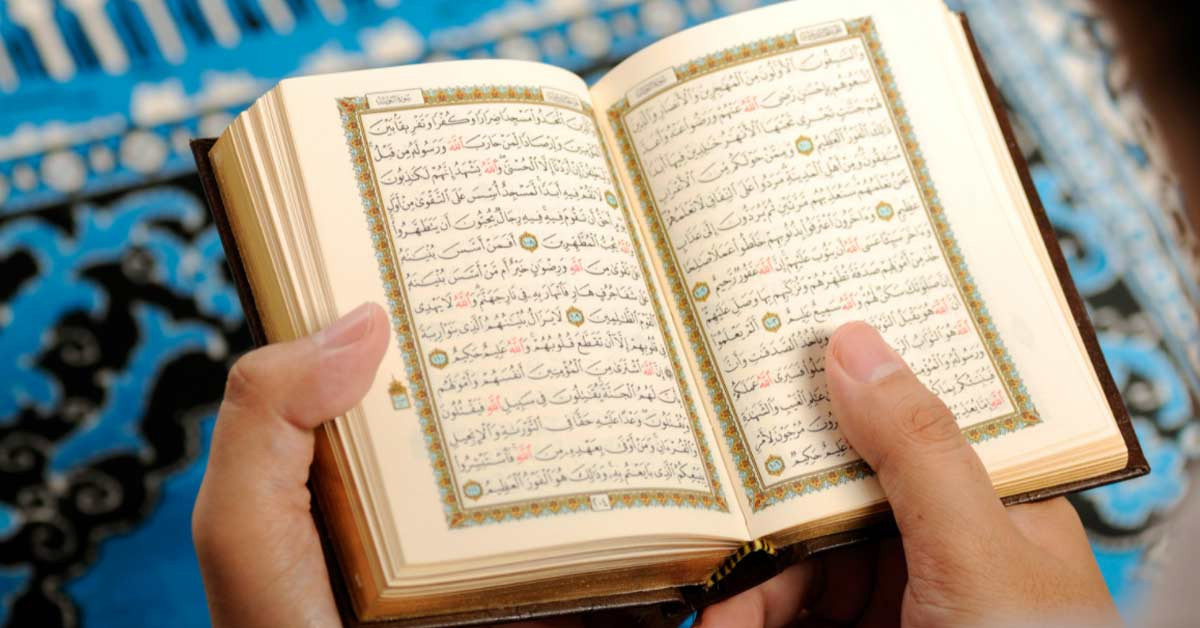 وَالسَّٰبِقُونَ الْأَوَّلُونَ مِنَ الْمُهَٰجِرِينَ وَالْأَنصَارِ وَالَّذِينَ
اتَّبَعُوهُم بِإِحْسَٰنٍ رَّضِيَ اللَّهُ عَنْهُمْ وَرَضُوا عَنْهُ وَأَعَدَّ
لَهُمْ جَنَّٰتٍ تَجْرِي تَحْتَهَا الْأَنْهَٰرُ خَٰلِدِينَ فِيهَا أَبَدًا
ذَٰلِكَ الْفَوْزُ الْعَظِيمُ ١٠٠ وَمِمَّنْ حَوْلَكُم مِّنَ الْأَعْرَابِ
مُنَٰفِقُونَ وَمِنْ أَهْلِ الْمَدِينَةِ مَرَدُوا عَلَى النِّفَاقِ لَا تَعْلَمُهُمْ
نَحْنُ نَعْلَمُهُمْ سَنُعَذِّبُهُم مَّرَّتَيْنِ ثُمَّ يُرَدُّونَ إِلَىٰ عَذَابٍ
عَظِيمٍ ١٠١ وَءَاخَرُونَ اعْتَرَفُوا بِذُنُوبِهِمْ خَلَطُوا عَمَلًا صَٰلِحًا
وَءَاخَرَ سَيِّئًا عَسَى اللَّهُ أَن يَتُوبَ عَلَيْهِمْ إِنَّ اللَّهَ غَفُورٌ رَّحِيمٌ ١٠٢
خُذْ مِنْ أَمْوَٰلِهِمْ صَدَقَةً تُطَهِّرُهُمْ وَتُزَكِّيهِم بِهَا وَصَلِّ عَلَيْهِمْ
إِنَّ صَلَوٰتَكَ سَكَنٌ لَّهُمْ وَاللَّهُ سَمِيعٌ عَلِيمٌ ١٠٣ أَلَمْ يَعْلَمُوا
أَنَّ اللَّهَ هُوَ يَقْبَلُ التَّوْبَةَ وَيَأْخُذُ الصَّدَقَٰتِ وَأَنَّ
اللَّهَ هُوَ التَّوَّابُ فَسَيَرَى اللَّهُ عَمَلَكُمْ
وَرَسُولُهُ عَٰلِمِ الْغَيْبِ وَالشَّهَٰدَةِ
فَيُنَبِّئُكُم مُرْجَوْنَ لِأَمْرِ
اللَّهِ عَلِيمٌ حَكِيمٌ ١٠٦
سُورَةُ التَّوْبَةِ
اتَّخَذُوا مَسْجِدًا ضِرَارًا وَكُفْرًا وَتَفْرِيقًا بَيْنَ
الْمُؤْمِنِينَ وَإِرْصَادًا لِّمَنْ حَارَبَ اللَّهَ وَرَسُولَهُ مِن قَبْلُ
إِنْ أَرَدْنَا إِلَّا الْحُسْنَىٰ وَاللَّهُ يَشْهَدُ إِنَّهُمْ لَكَٰذِبُونَ
١٠٧ لَا تَقُمْ فِيهِ أَبَدًا لَّمَسْجِدٌ أُسِّسَ عَلَى التَّقْوَىٰ مِنْ أَوَّلِ
أَحَقُّ أَن تَقُومَ فِيهِ فِيهِ رِجَالٌ يُحِبُّونَ أَن يَتَطَهَّرُوا
وَاللَّهُ يُحِبُّ الْمُطَّهِّرِينَ ١٠٨ أَفَمَنْ أَسَّسَ بُنْيَٰنَهُ
عَلَىٰ تَقْوَىٰ مِنَ اللَّهِ وَرِضْوَٰنٍ خَيْرٌ أَم مَّنْ أَسَّسَ بُنْيَٰنَهُ
عَلَىٰ شَفَا جُرُفٍ هَارٍ فَانْهَارَ بِهِ فِي نَارِ جَهَنَّمَ وَاللَّهُ لَا يَهْدِي
الْقَوْمَ الظَّٰلِمِينَ ١٠٩ لَا يَزَالُ بُنْيَٰنُهُمُ الَّذِي بَنَوْا رِيبَةً
فِي قُلُوبِهِمْ إِلَّا أَن تَقَطَّعَ قُلُوبُهُمْ وَاللَّهُ عَلِيمٌ حَكِيمٌ ١١٠
إِنَّ اللَّهَ اشْتَرَىٰ مِنَ الْمُؤْمِنِينَ أَنفُسَهُمْ وَأَمْوَٰلَهُم
بِأَنَّ لَهُمُ الْجَنَّةَ يُقَٰتِلُونَ فِي سَبِيلِ اللَّهِ فَيَقْتُلُونَ
وَيُقْتَلُونَ وَعْدًا عَلَيْهِ حَقًّا فِي التَّوْرَىٰةِ وَالْإِنجِيلِ
وَالْقُرْءَانِ وَمَنْ أَوْفَىٰ بِعَهْدِهِ مِنَ اللَّهِ فَاسْتَبْشِرُوا
بِبَيْعِكُمُ الَّذِي بَايَعْتُم بِهِ وَذَٰلِكَ هُوَ الْفَوْزُ الْعَظِيمُ ١١١
٢٠٤